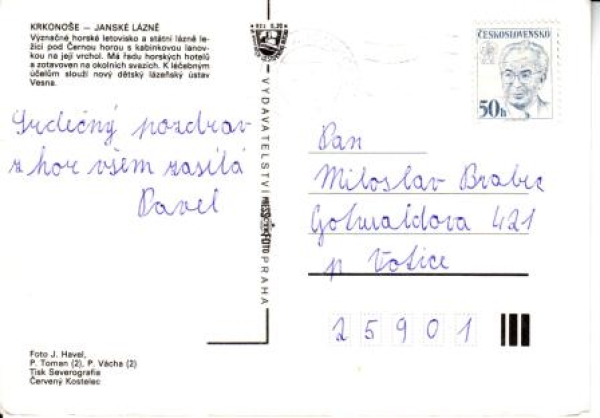 KRKONOŠE – JANSKÉ LÁZNĚ
Význačné horské letovisko a státní lázně le-
žící pod Černou horou s kabinkovou lanov-
kou na její vrchol. Má řadu horských hotelů
a zotavoven na okolních svazích. K léčebným
účelům slouží nový dětský lázeňský ústav
Vesna.
Srdečný pozdrav
z hor všem zasílá
Pavel
Foto J. Havel,
P. Toman (2), P. Vácha (2)
Tisk Severografia
Červený Kostelec
VYDAVATELSTVÍ PRESSFOTO PRAHA
ČESKOSLOVENSKO
50h
Pan
Miloslav Brabec
Gottwaldova 421
p Votice
25901